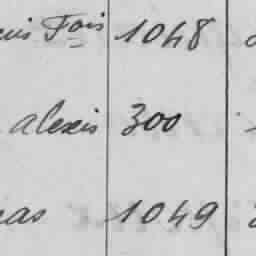 Fois 1048
alexis 300
1049